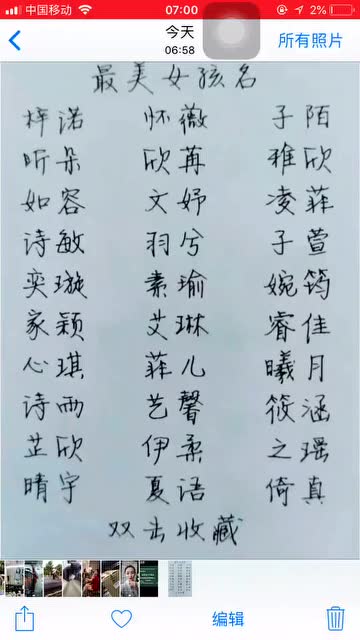 中国移动 07:00 2%
今天
06:58
所有照片
最美女孩名
梓诺 怀薇 子陌
昕朵 欣苒 雅欣
如容 文妤 凌菲
诗敏 羽兮 子萱
奕璇 素瑜 婉筠
家颖 艾琳 睿佳
心琪 菲儿 曦月
诗雨 艺馨 筱涵
芷欣 伊柔 之瑶
晴宇 夏语 倚真
双击收藏
编辑